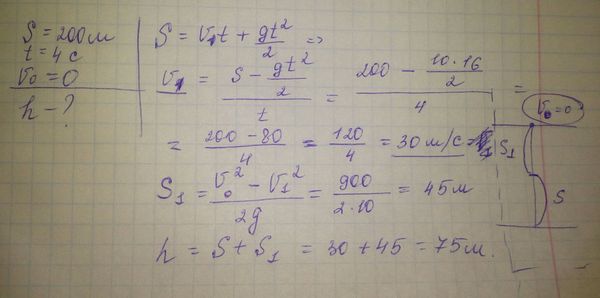 S = 200 м
t = 4 с
v₀ = 0
h - ?
S = v₁t + gt²/2 =>
v₁ = (S - gt²/2)/t = (200 - 10·16/2)/4 =
= (200 - 80)/4 = 120/4 = 30 м/с
S₁ = (v₀² - v₁²)/2g = 900/(2·10) = 45 м
h = S + S₁ = 30 + 45 = 75 м.
v₀ = 0
S₁
S